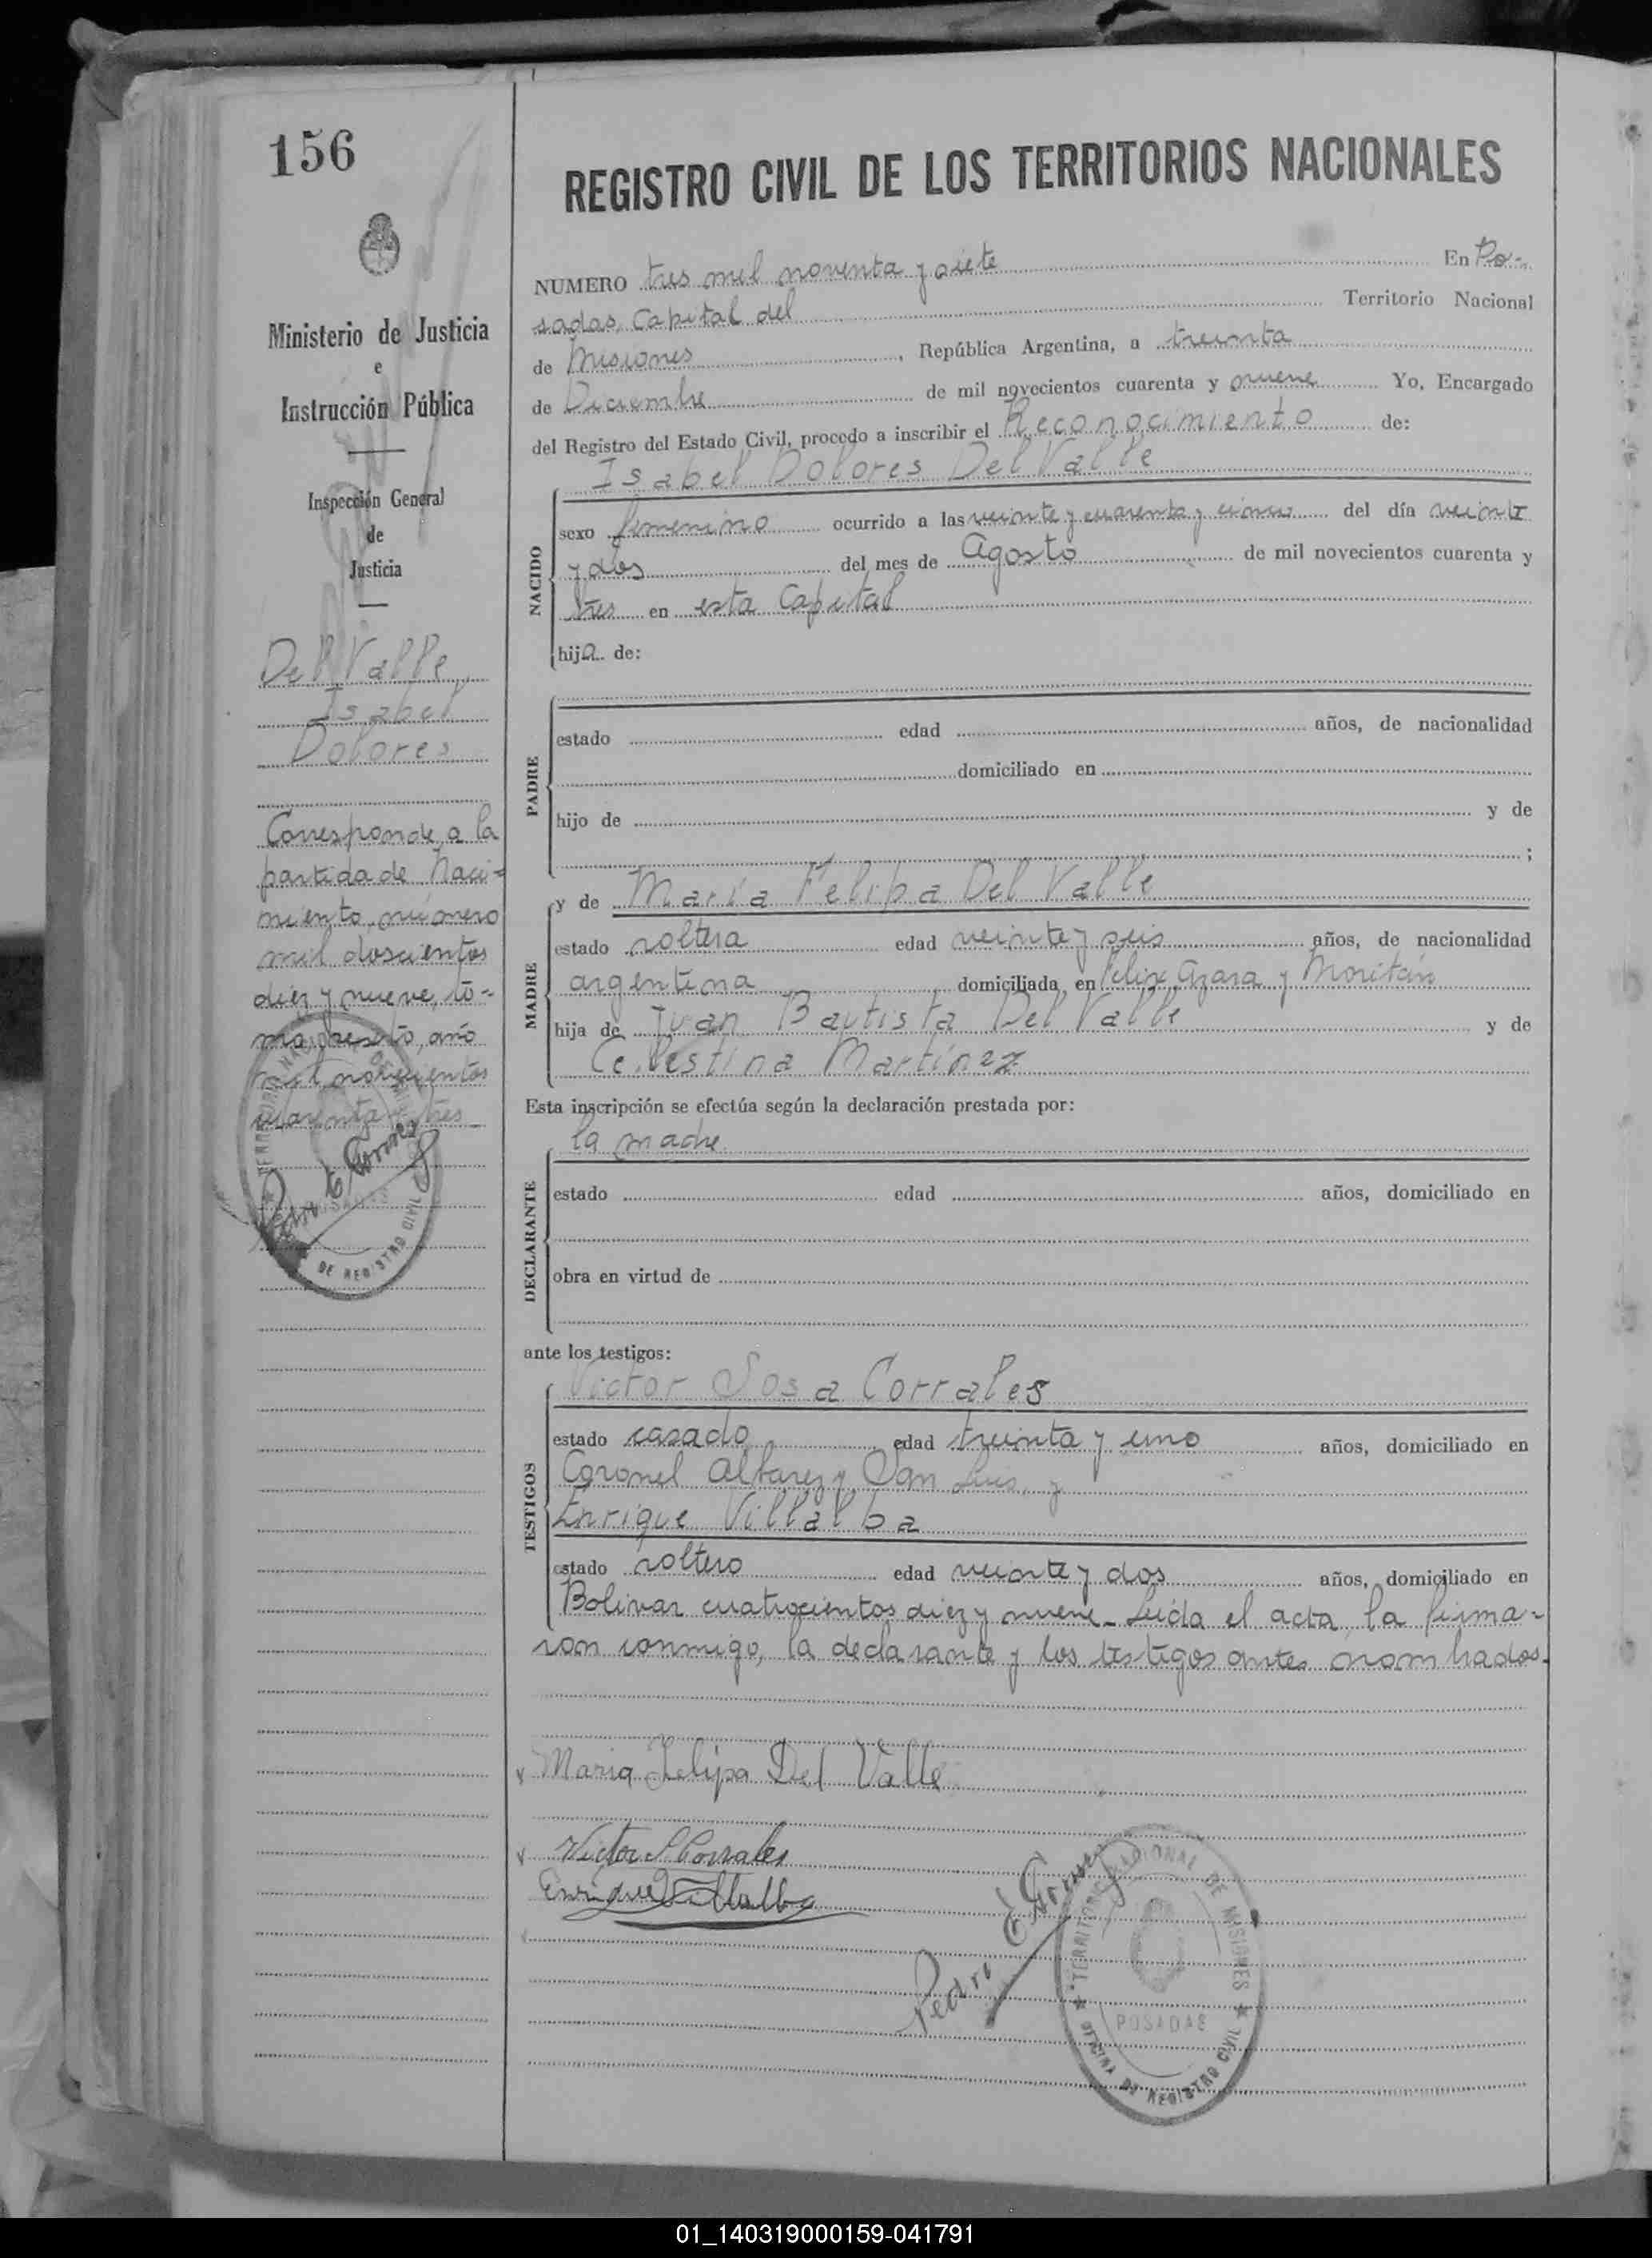 156
Ministerio de Justicia
e
Instrucción Pública
Inspección General
de
Justicia
Del Valle
Isabel
Dolores
Corresponde a la
partida de Naci-
miento número
mil doscientos
diez y nueve, to-
mo, año
mil novecientos
cuarenta y tres
REGISTRO CIVIL DE LOS TERRITORIOS NACIONALES
NUMERO tres mil noventa y siete En Po-
sadas, Capital del Territorio Nacional
de Misiones, República Argentina, a treinta
de Diciembre de mil novecientos cuarenta y nueve Yo, Encargado
del Registro del Estado Civil, procedo a inscribir el Reconocimiento de:
Isabel Dolores Del Valle
NACIDO
sexo femenino ocurrido a las veinte y cuarenta y cinco del día veinte
y dos del mes de Agosto de mil novecientos cuarenta y
tres en esta Capital
hija de:
PADRE
estado edad años, de nacionalidad
domiciliado en
hijo de y de
;
MADRE
y de María Felipa Del Valle
estado soltera edad veinte y seis años, de nacionalidad
argentina domiciliada en Felix Azara y Moritán
hija de Juan Bautista Del Valle y de
Celestina Martínez
Esta inscripción se efectúa según la declaración prestada por:
la madre
DECLARANTE
estado edad años, domiciliado en
obra en virtud de
ante los testigos:
TESTIGOS
Victor Sosa Corrales
estado casado edad treinta y uno años, domiciliado en
Coronel Alvarez y San Luis, y
Enrique Villalba
estado soltero edad veinte y dos años, domiciliado en
Bolivar cuatrocientos diez y nueve. Leída el acta la firma-
ron conmigo, la declarante y los testigos antes nombrados.
Maria Felipa Del Valle
Victor S Corrales
Enrique Villalba
Pedro E Gomez
TERRITORIO NACIONAL DE MISIONES
POSADAS
OFICINA DE REGISTRO CIVIL
01_140319000159-041791